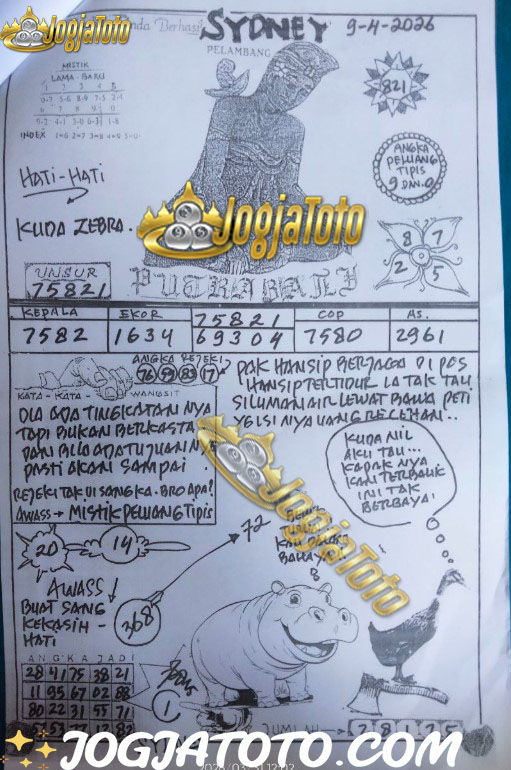 JogjaToto
nda Berhasil
SYDNEY
9-4-2026
PELAMBANG
MISTIK
LAMA - BARU
INDEX
821
HATI-HATI
KUDA ZEBRA.
ANGKA
PELUANG
TIPIS
9 DAN 0
8 7
2 5
JogjaToto
UNSUR
75821
KEPALA EKOR 75821 COP AS.
7582 1634 69304 7580 2961
ANGKA REJEKI
17
KATA - KATA - WANGSIT
DIA ADA TINGKATAN NYA
TAPI BUKAN BERKASTA
DAN BILA ADA TUJUAN NYA
PASTI AKAN SAMPAI
REJEKI TAK DI SANGKA. BRO APA?
AWASS → MISTIK PELUANG TIPIS
PAK HANSIP BERJAGA DI POS
HANSIP TERTIDUR IA TAK TAU
SILUMAN AIR LEWAT BAWA PETI
YG ISI NYA UANG RECEHAN..
KUDA NIL
AKU TAU...
KAPAK NYA
KAN TERBALIK
INI TAK
BERBAYA!
JogjaToto
20 14
72
BAHAYA
AWASS
BUAT SANG
KEKASIH -
HATI
368
ANGKA JADI
28 41 75 38 21
11 95 67 02 88
80 22 31 55 71
1
JUMLAH
JOGJATOTO.COM